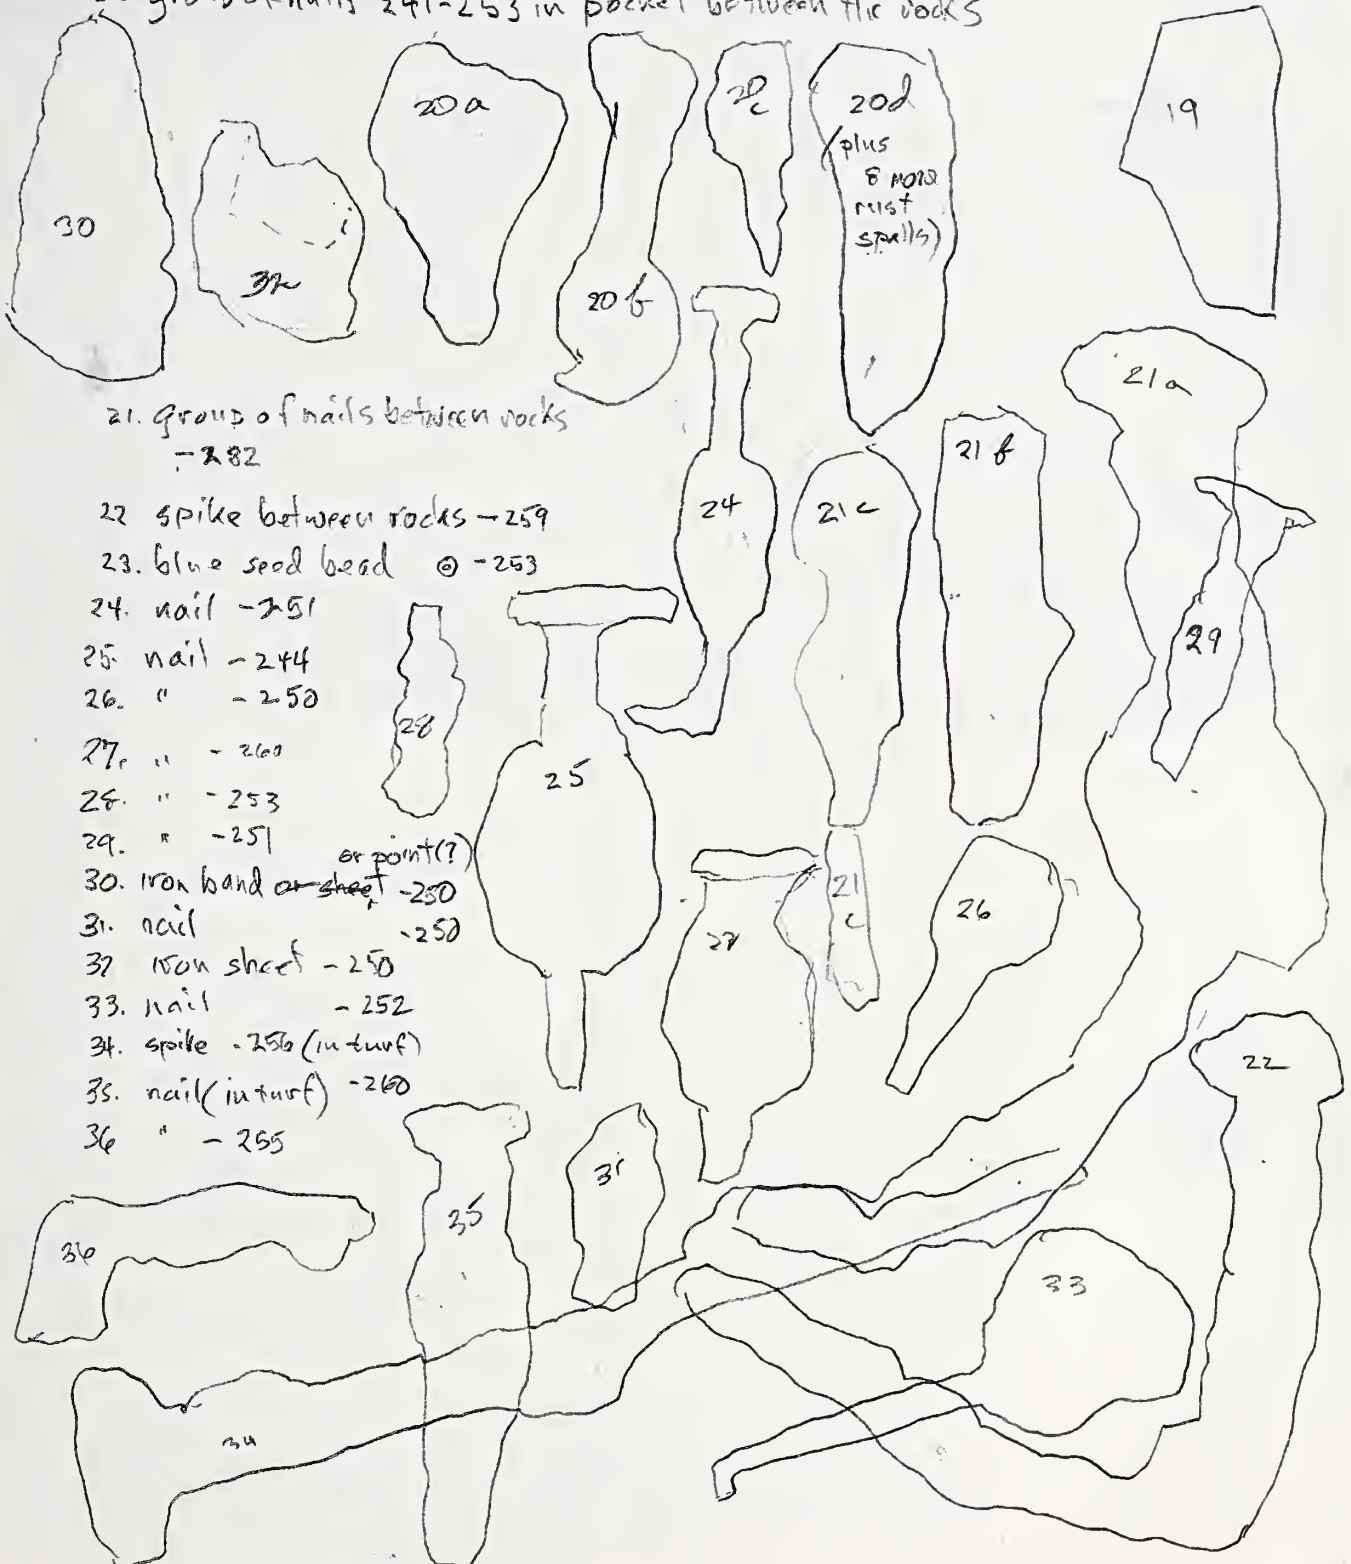 group of nails 241-253 in pocket between the rocks
30
32
20a
20b
20c
20d
(plus
8 more
rust
spalls)
19
21a
21. group of nails between rocks
-282
22 spike between rocks -259
23. blue seed bead -253
24. nail -251
25. nail -244
26. " -250
27. " -260
28. " -253
29. " -251
or point(?)
30. iron band or sheet -250
31. nail -250
32 iron sheet -250
33. nail -252
34. spike -256 (in turf)
35. nail (in turf) -260
36 " -255
24
21c
21b
29
28
25
27
21
c
26
22
36
35
31
33
34